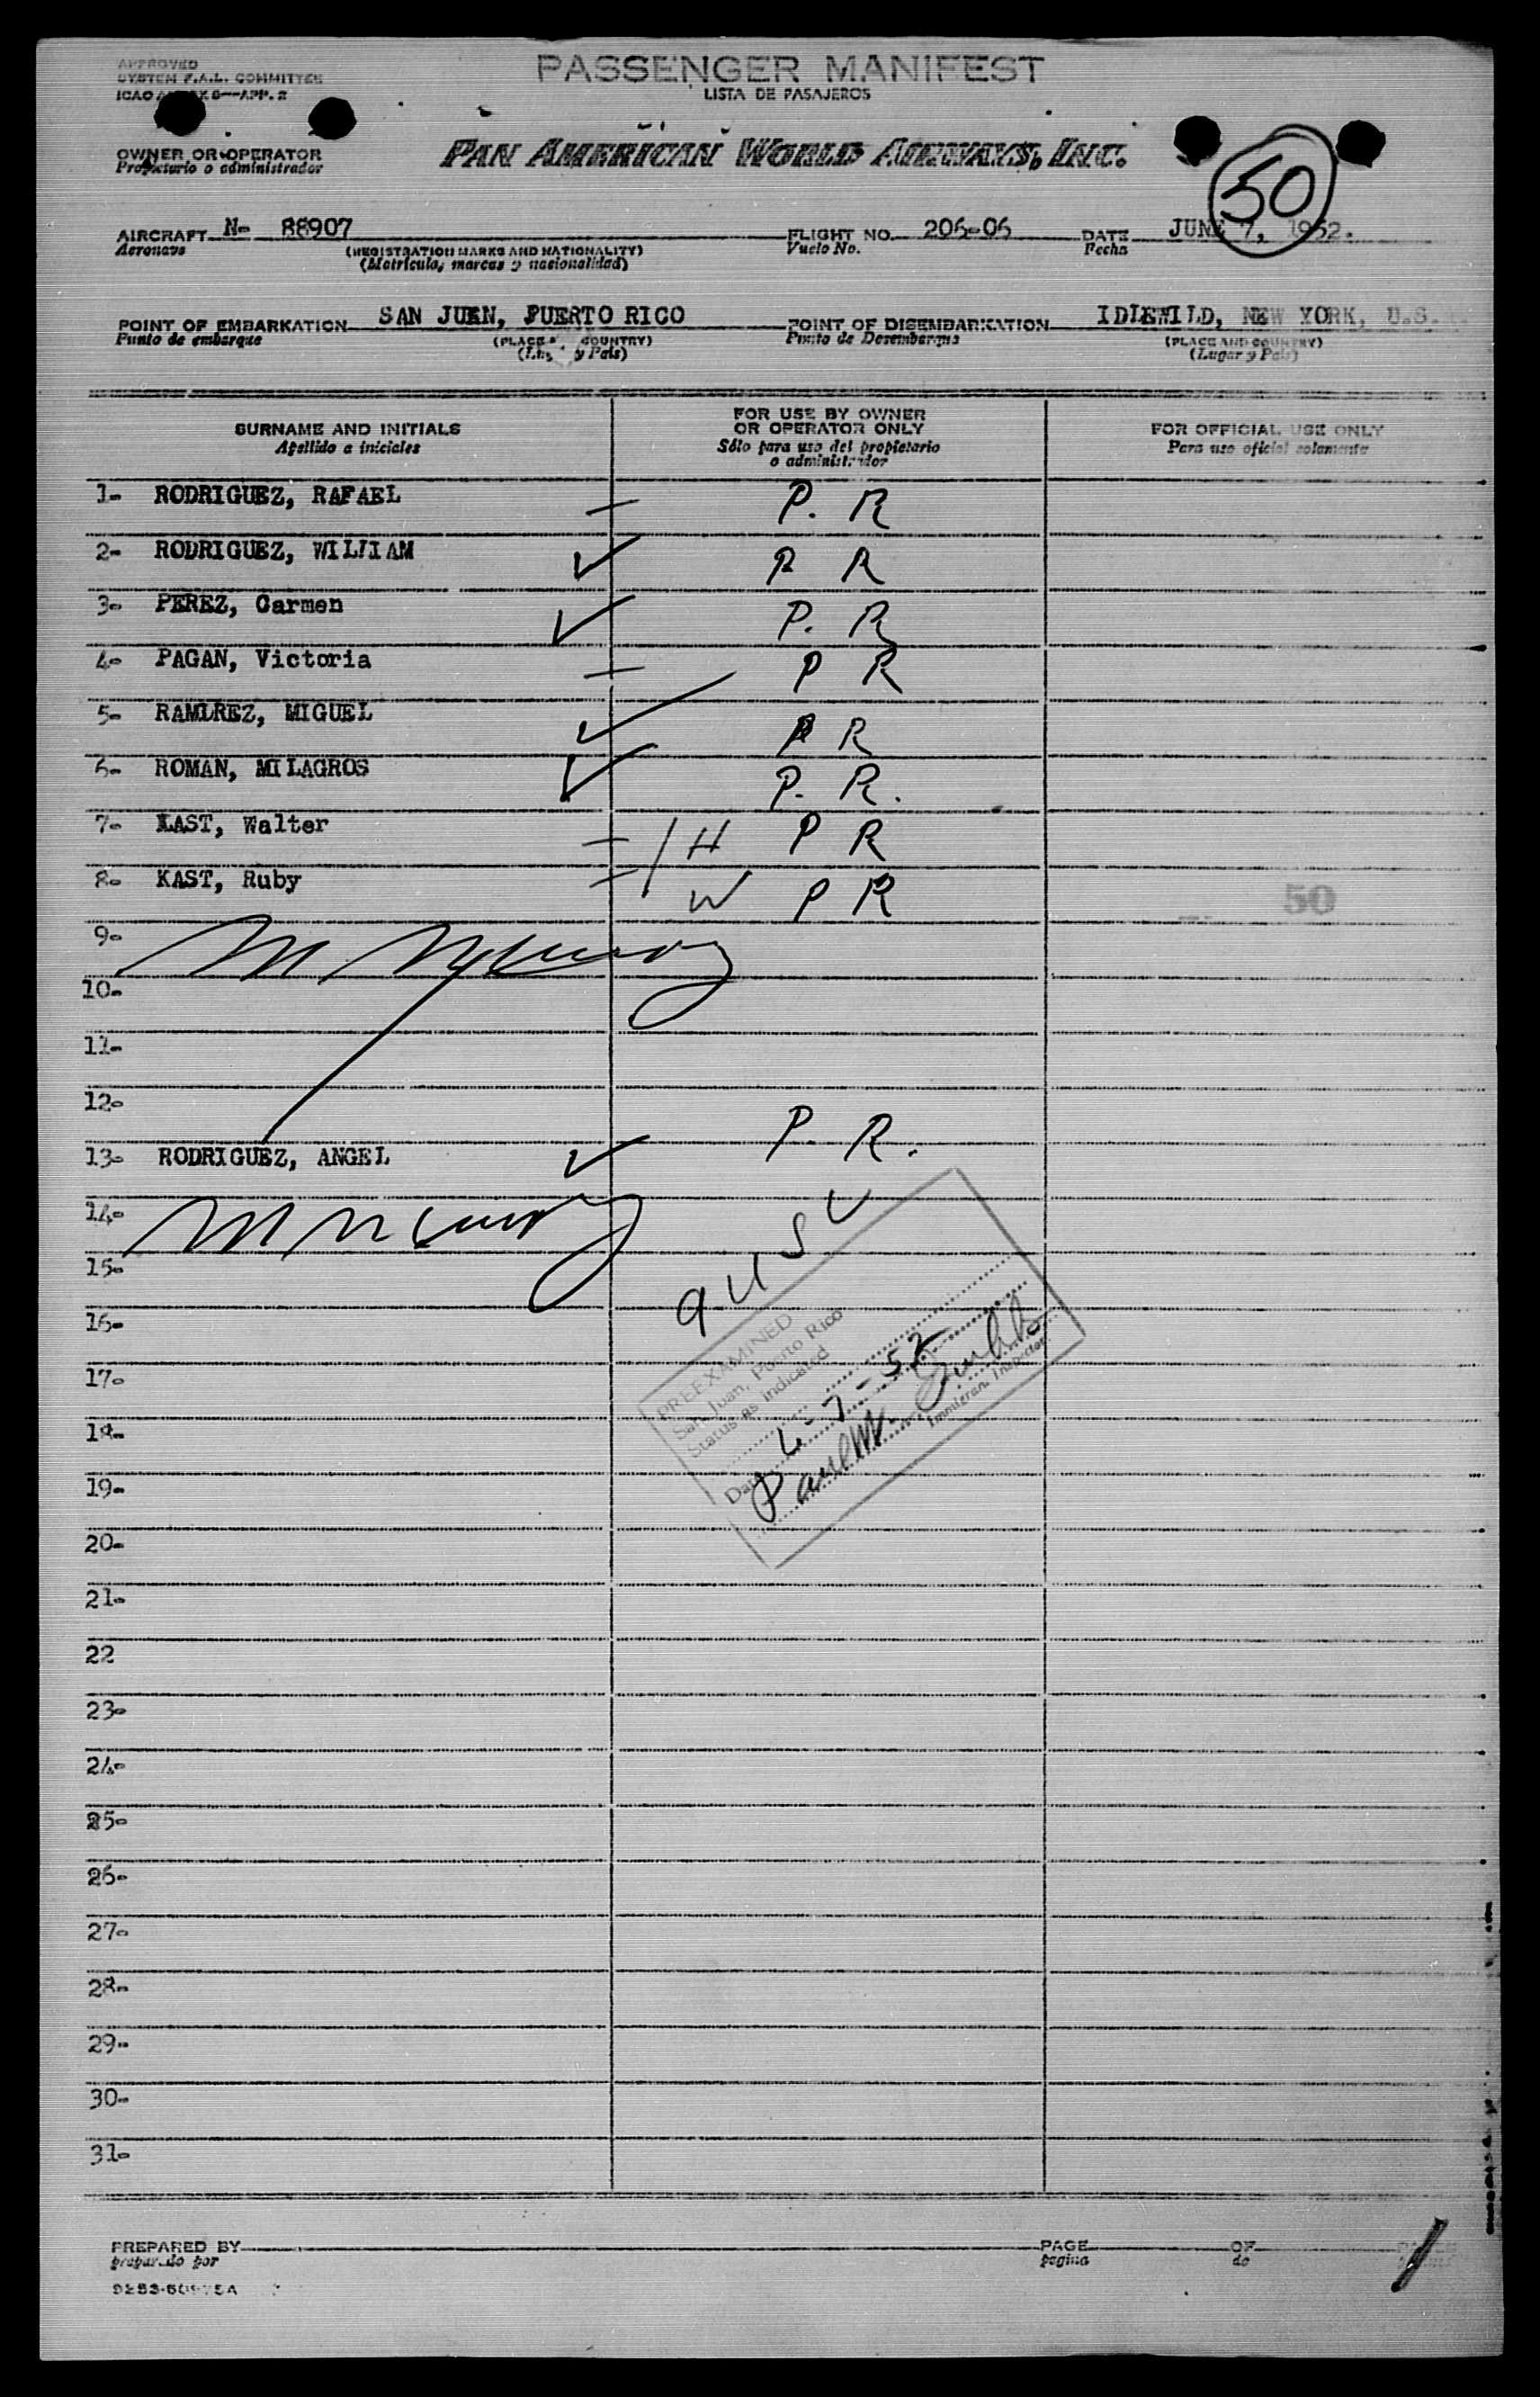 APPROVED
SYSTEM F.A.L. COMMITTEE
ICAO
APP. 2
PASSENGER MANIFEST
LISTA DE PASAJEROS
OWNER OR OPERATOR
Propietario o administrador
PAN AMERICAN WORLD AIRWAYS, INC.
50
AIRCRAFT N- 88907 FLIGHT NO. 206-06 DATE JUNE 7, 1952.
Aeronave (REGISTRATION MARKS AND NATIONALITY) Vuelo No. Fecha
(Matrícula, marcas y nacionalidad)
POINT OF EMBARKATION SAN JUAN, PUERTO RICO POINT OF DISEMBARKATION IDLEWILD, NEW YORK, U.S.
Punto de embarque (PLACE COUNTRY) Punto de Desembarque (PLACE AND COUNTRY)
y País) (Lugar y País)
SURNAME AND INITIALS
Apellido e iniciales
FOR USE BY OWNER
OR OPERATOR ONLY
Sólo para uso del propietario
o administrador
FOR OFFICIAL USE ONLY
Para uso oficial solamente
1- RODRIGUEZ, RAFAEL P. R
2- RODRIGUEZ, WILLIAM P R
3- PEREZ, Carmen P. R
4- PAGAN, Victoria P R
5- RAMIREZ, MIGUEL P R
6- ROMAN, MILAGROS P. R.
7- KAST, Walter H P R
8- KAST, Ruby W P R
50
9-
10-
11-
12-
13- RODRIGUEZ, ANGEL P. R.
14-
15-
9 U S C
16-
PREEXAMINED
San Juan, Puerto Rico
Status as indicated
Date 6-7-52
Paul W.
Immigrant Inspector
17-
18-
19-
20-
21-
22
23-
24-
25-
26-
27-
28-
29-
30-
31-
PREPARED BY PAGE OF
preparado por pagina de
1